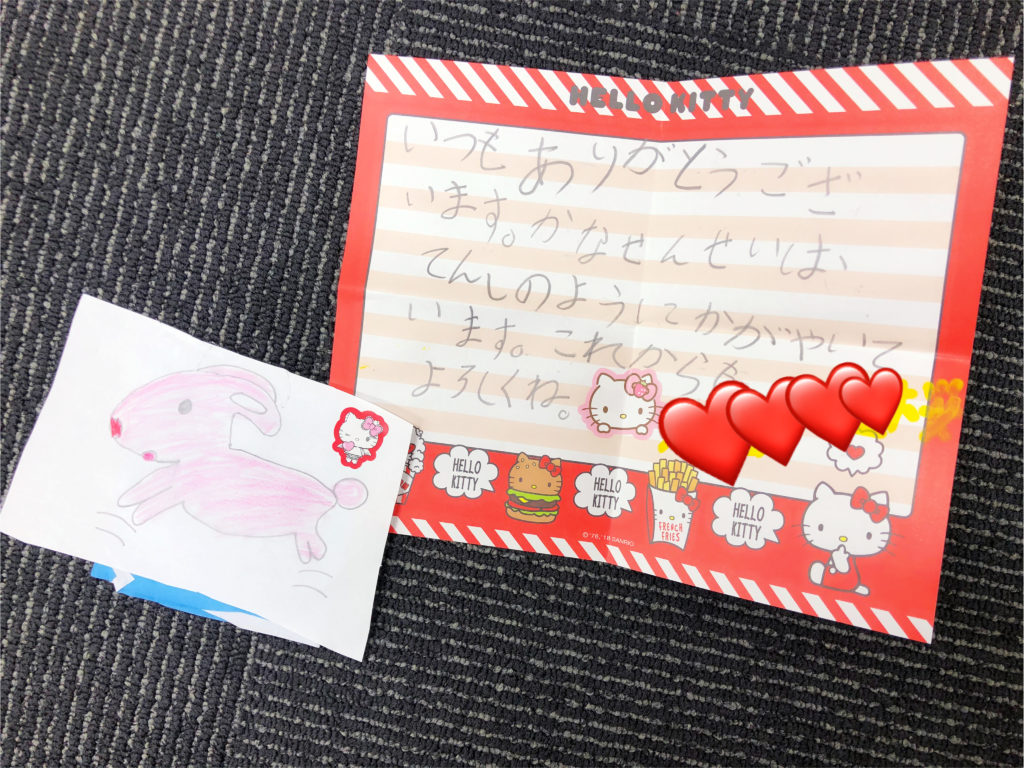 HELLO KITTY
いつもありがとうござ
います。かなせんせいは、
てんしのようにかがやいて
います。これからも
よろしくね。
HELLO
KITTY
HELLO
KITTY
FRENCH
FRIES
HELLO
KITTY
© '76, '18 SANRIO